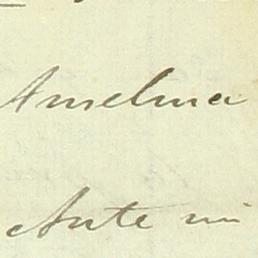 Anselma
Ante mi